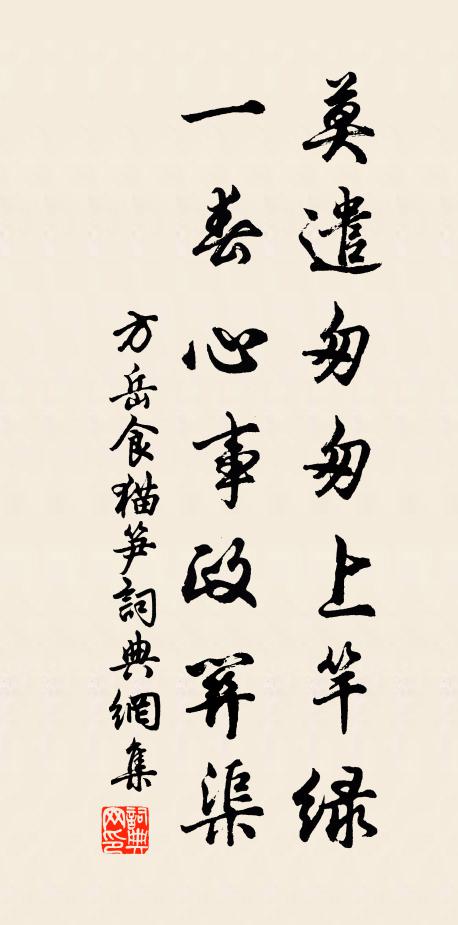 莫遣匆匆上竿绿
一春心事政关渠
方岳食猫笋詞典網集
詞典网印